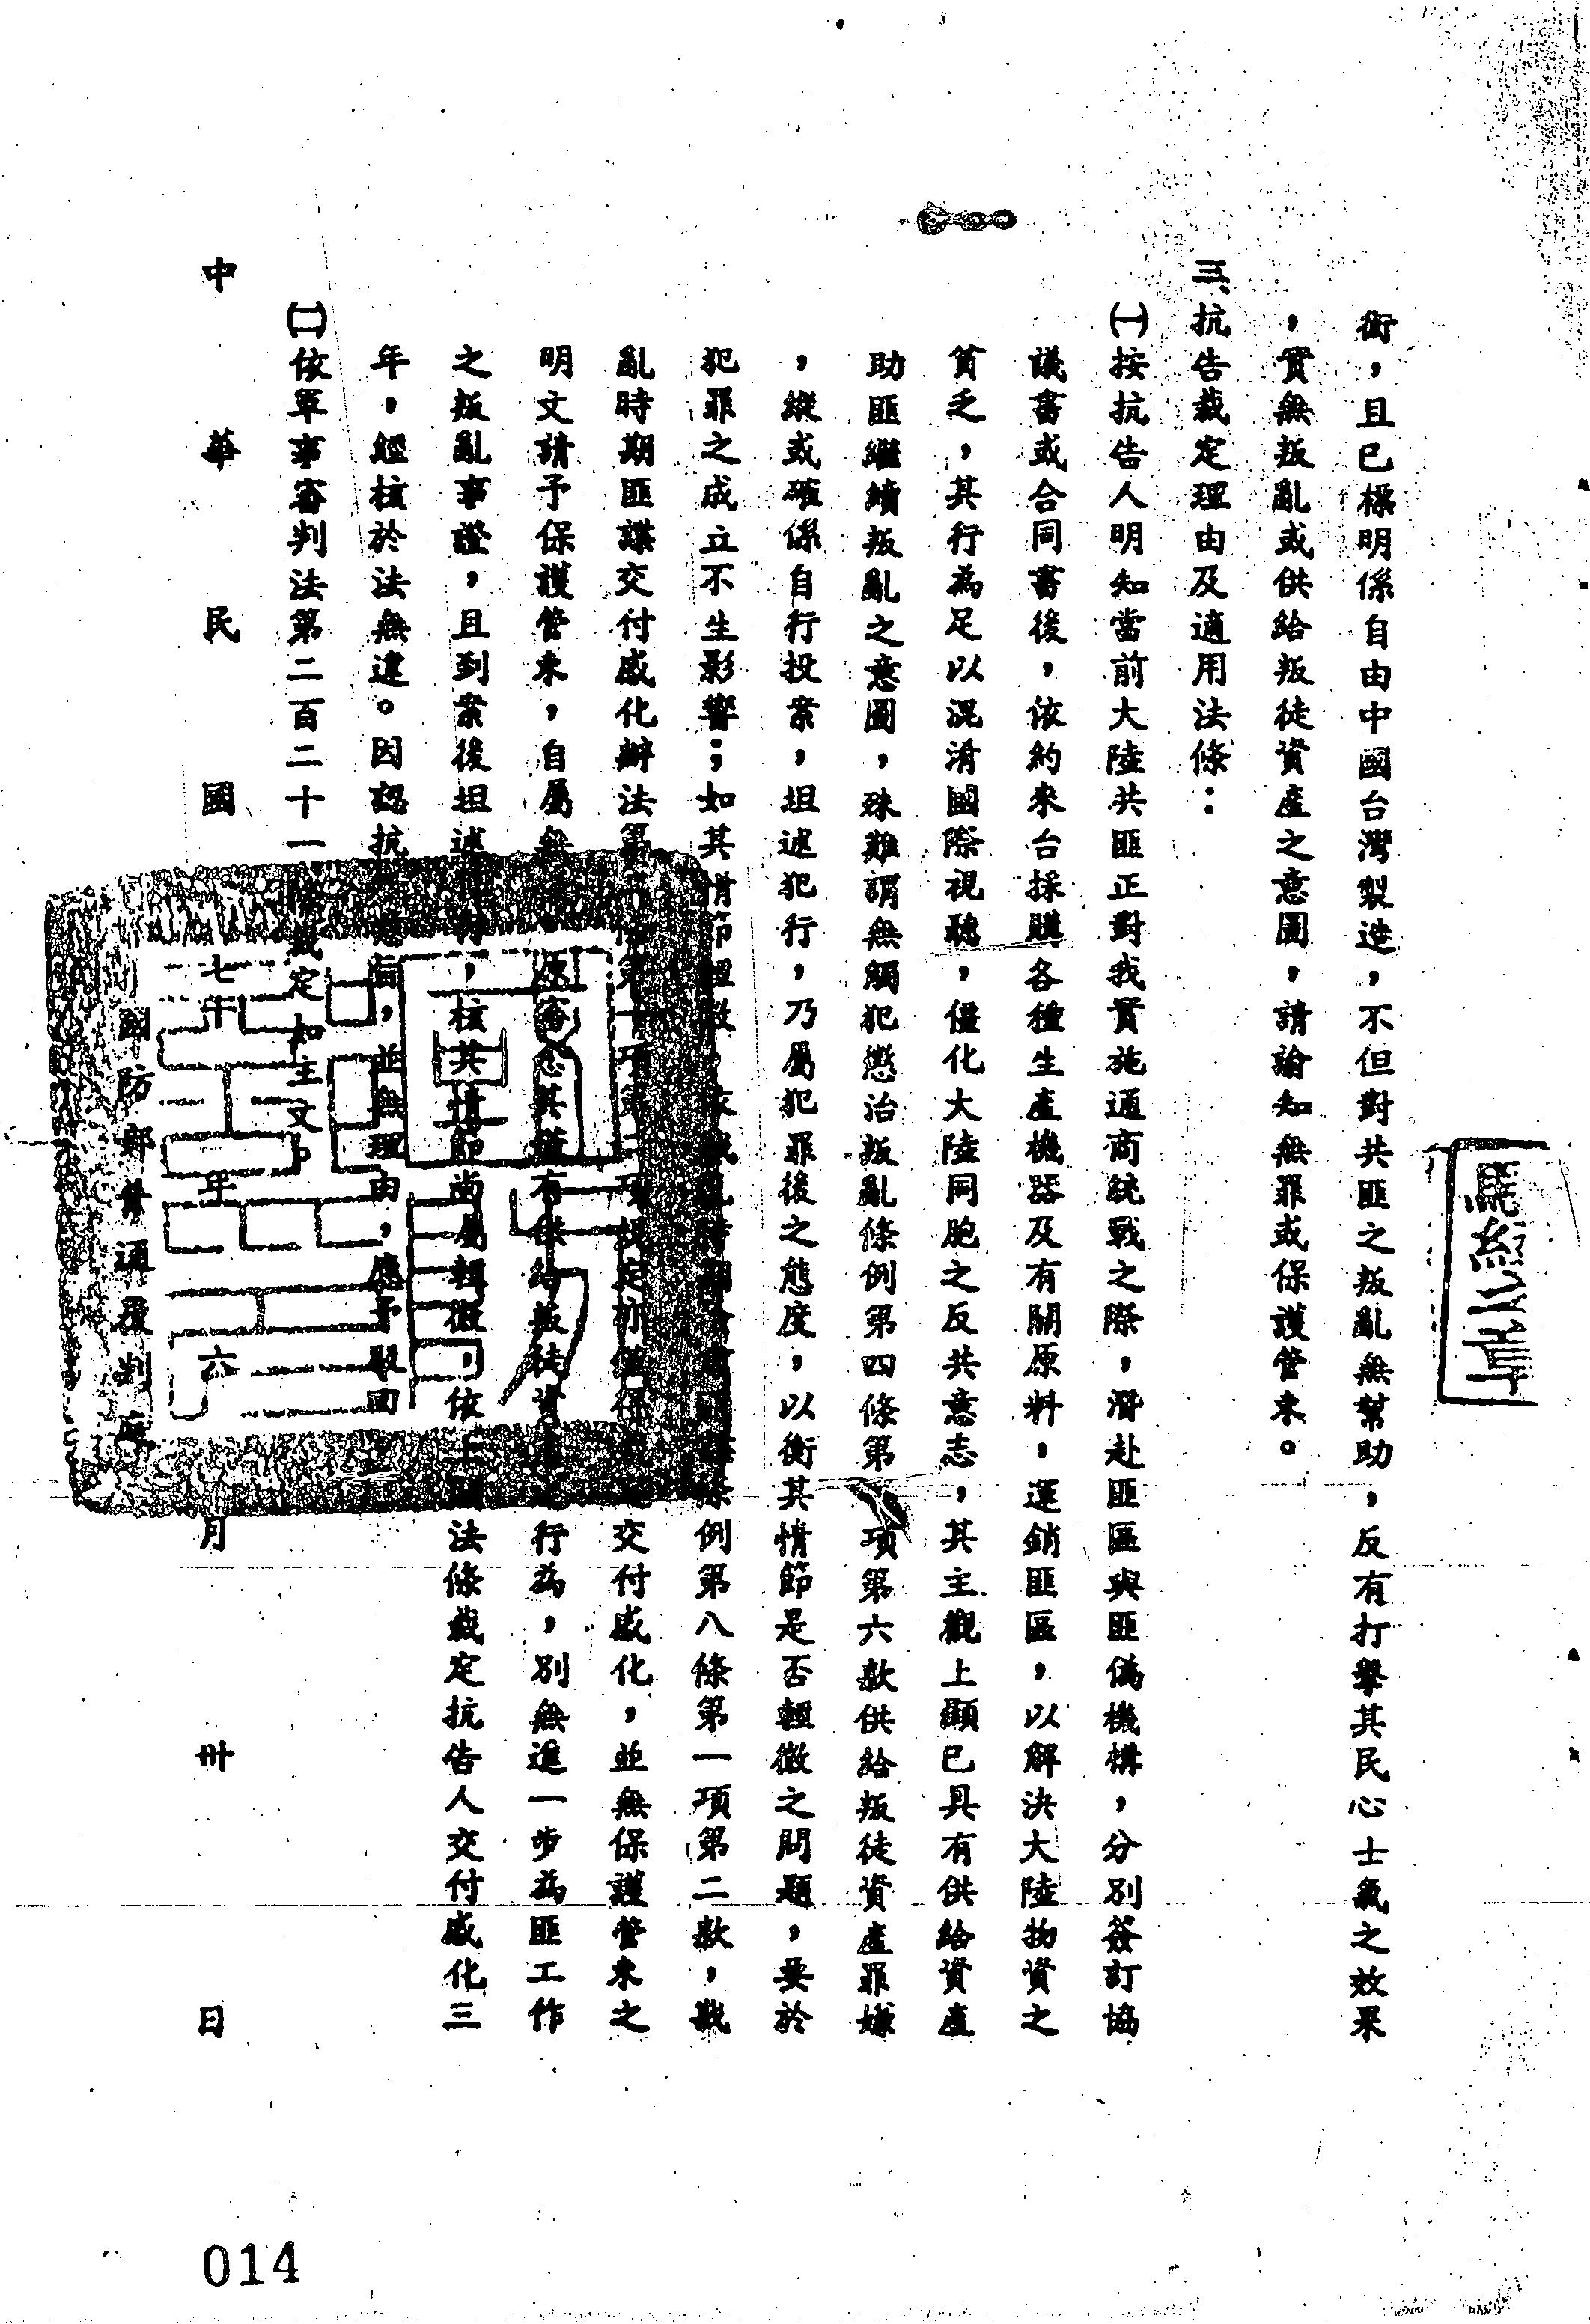 衞，且已標明係自由中國台灣製造，不但對共匪之叛亂無幫助，反有打擊其民心士氣之效果
，實無叛亂或供給叛徒資產之意圖，請諭知無罪或保護管束。
三、抗告裁定理由及適用法條：
㈠按抗告人明知當前大陸共匪正對我實施通商統戰之際，潛赴匪區與匪偽機構，分別簽訂協
議書或合同書後，依約來台採購各種生產機器及有關原料，運銷匪區，以解決大陸物資之
貧乏，其行為足以混淆國際視聽，僵化大陸同胞之反共意志，其主觀上顯已具有供給資產
助匪繼續叛亂之意圖，殊難謂無觸犯懲治叛亂條例第四條第 項第六款供給叛徒資產罪嫌
，縱或確係自行投案，坦述犯行，乃屬犯罪後之態度，以衡其情節是否輕微之問題，要於
犯罪之成立不生影響；如其情節輕微 條例第八條第一項第二款，戡
亂時期匪諜交付感化辦法第 第 項第二項規定亦僅保 交付感化，並無保護管束之
明文請予保護管束，自屬無 原審念其僅有供給叛徒資 行為，別無進一步為匪工作
之叛亂事證，且到案後坦述 ，核其情節尚屬輕微，依上 法條裁定抗告人交付感化三
年，經核於法無違。因認抗 意旨，並無理由，應予駁回
㈡依軍事審判法第二百二十一 裁定如主文。
中華民國 七年 年六月卅日
國防部普通覆判庭
014